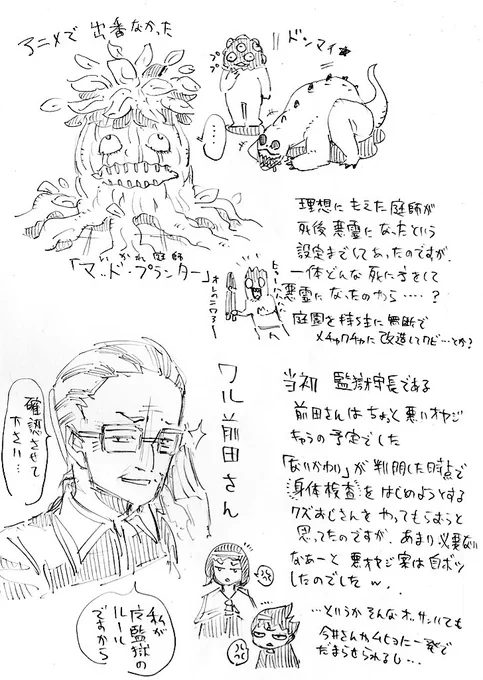 アニメで出番なかった
ププ
ドンマイ☆
‥‥
いかれ庭師
「マッド・プランター」
理想にもえた庭師が
死後悪霊になったという
設定までしてあったのですが、
一体どんな死に方をして
悪霊になったのやら‥‥?
庭園を持ち主に無断で
メチャクチャに改造してクビ…とか?
オレのニワろー
ワル前田さん
確認させて
下さい…
当初 監獄守長である
前田さんはちょっと悪いオヤジ
キャラの予定でした
が判明した時点で
身体検査をはじめようとする
クズおじさんをやってもらおうと
思ってたのですが、あまり必要ない
なあーと悪オヤジ実は自ボツ
したのでした〜
…というかそんなオッサンいても
今井さんかムヒョに一発で
だまらせられるし…
私が
監獄の
ルール
ですから